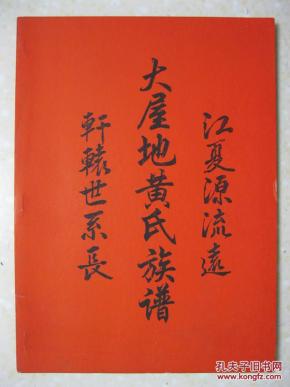 江夏源流遠
大屋地黄氏族谱
軒轅世系長
孔夫子旧书网